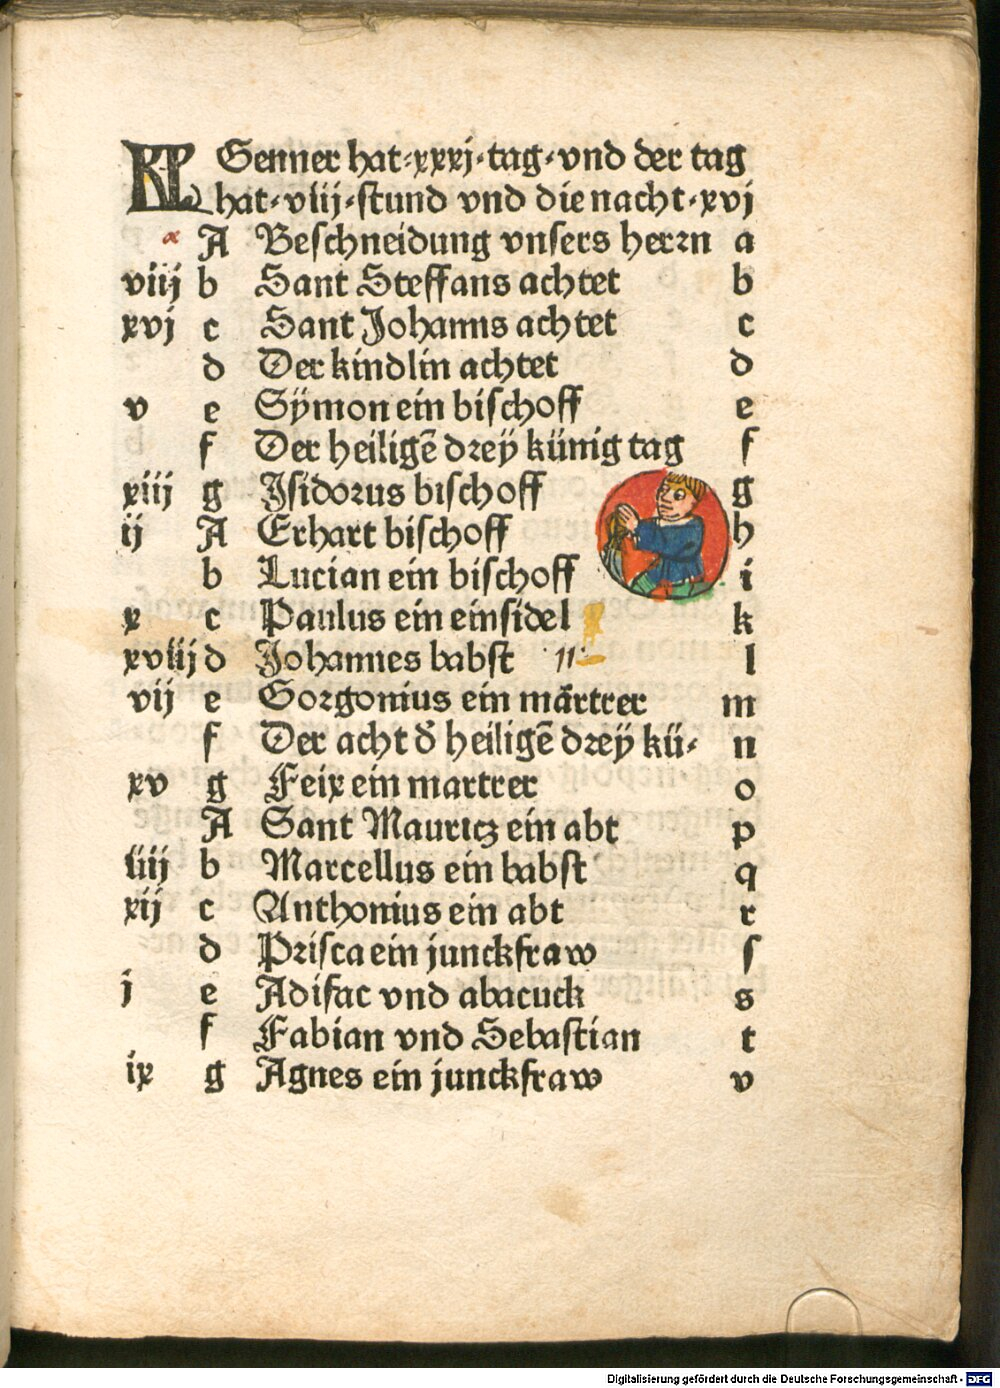 KL Genner hat·xxxj·tag·vnd der tag
hat·viij·stund vnd die nacht·xvj
A Beschneidung vnsers herrn a
viij b Sant Steffans achtet b
xvj c Sant Johanns achtet c
d Der kindlin achtet d
v e Sÿmon ein bischoff e
f Der heiligē dreÿ künig tag f
xiij g Jsidorus bischoff g
ij A Erhart bischoff h
b Lucian ein bischoff i
x c Paulus ein einsidel k
xviij d Johannes babst 11 l
vij e Gorgonius ein mårtrer m
f Der acht d̾ heiligē dreÿ kü⸗ n
xv g Feix ein martrer o
A Sant Mauricz ein abt p
iiij b Marcellus ein babst q
xij c Anthonius ein abt r
d Prisca ein junckfraw ſ
j e Adifac vnd abacuck s
f Fabian vnd Sebastian t
ix g Agnes ein junckfraw v
Digitalisierung gefördert durch die Deutsche Forschungsgemeinschaft - DFG